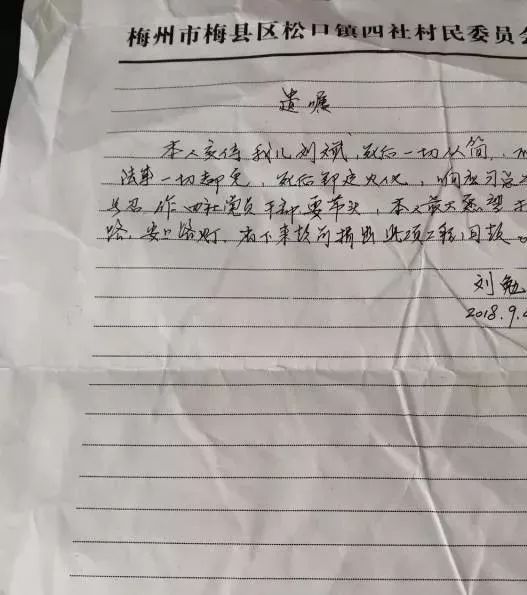 梅州市梅县区松口镇四社村民委员会
遗嘱
本人交待我儿刘斌,死后一切从简,
法事一切都免,死后即送火化,响应习总
号召作四社党员干部要带头,本人最大愿望
路,安路灯,有下来款可捐出此项工程,回报
刘勉
2018.9.